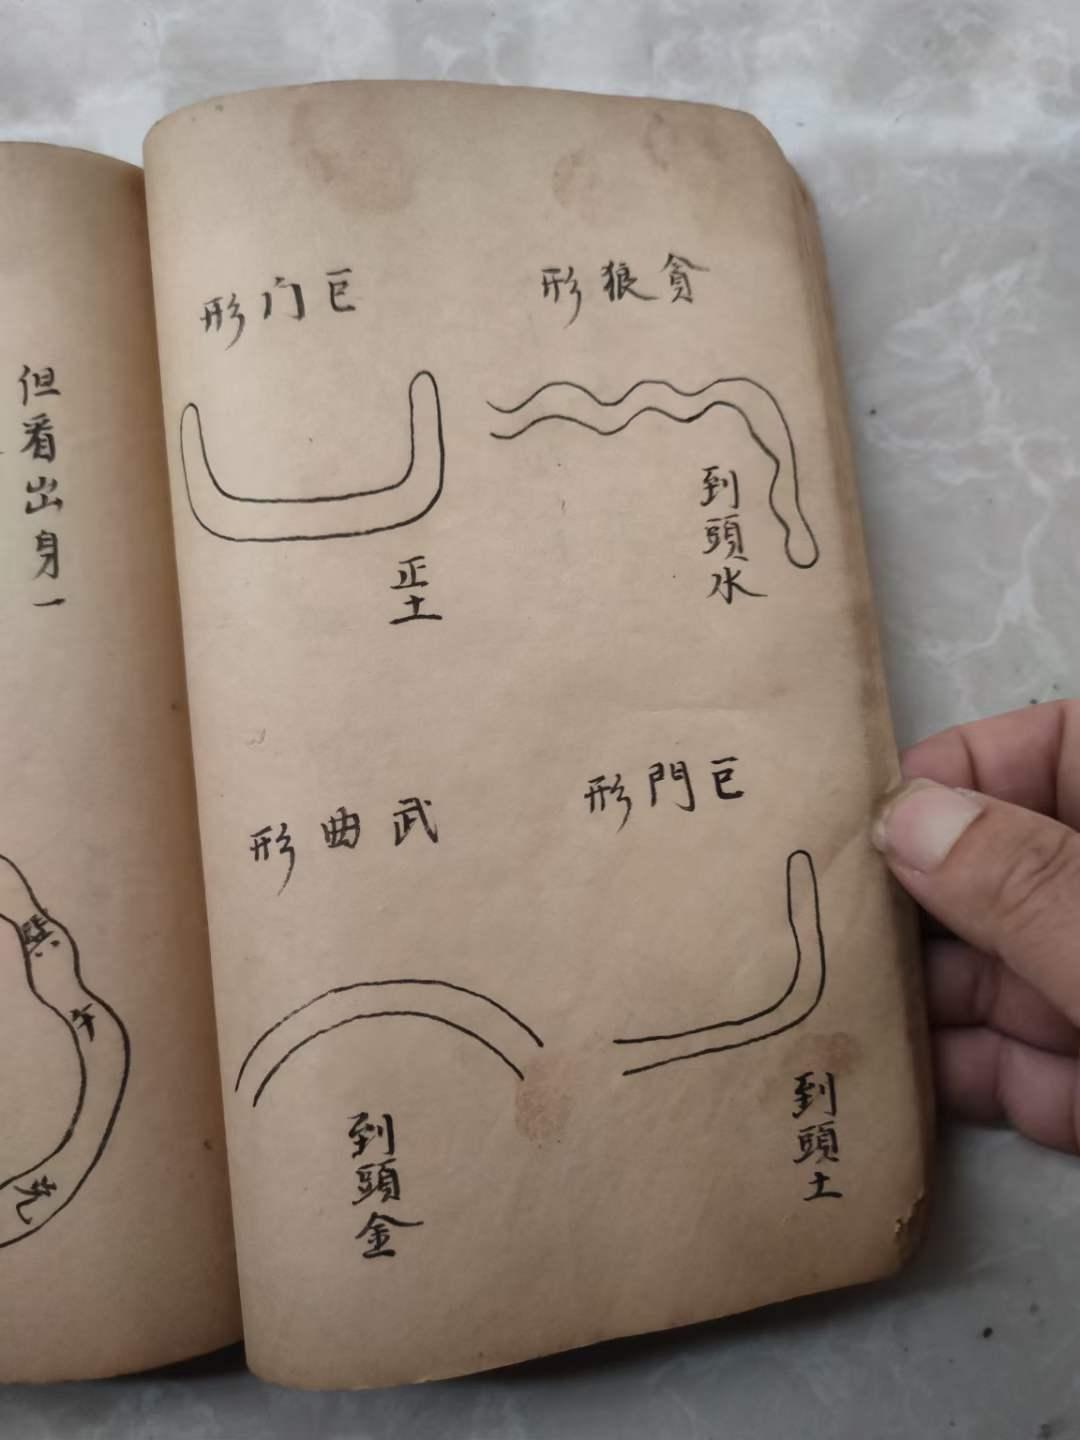 貪狼形
到頭水
巨門形
到頭土
巨门形
正土
武曲形
到頭金
但看出身一
巽
午